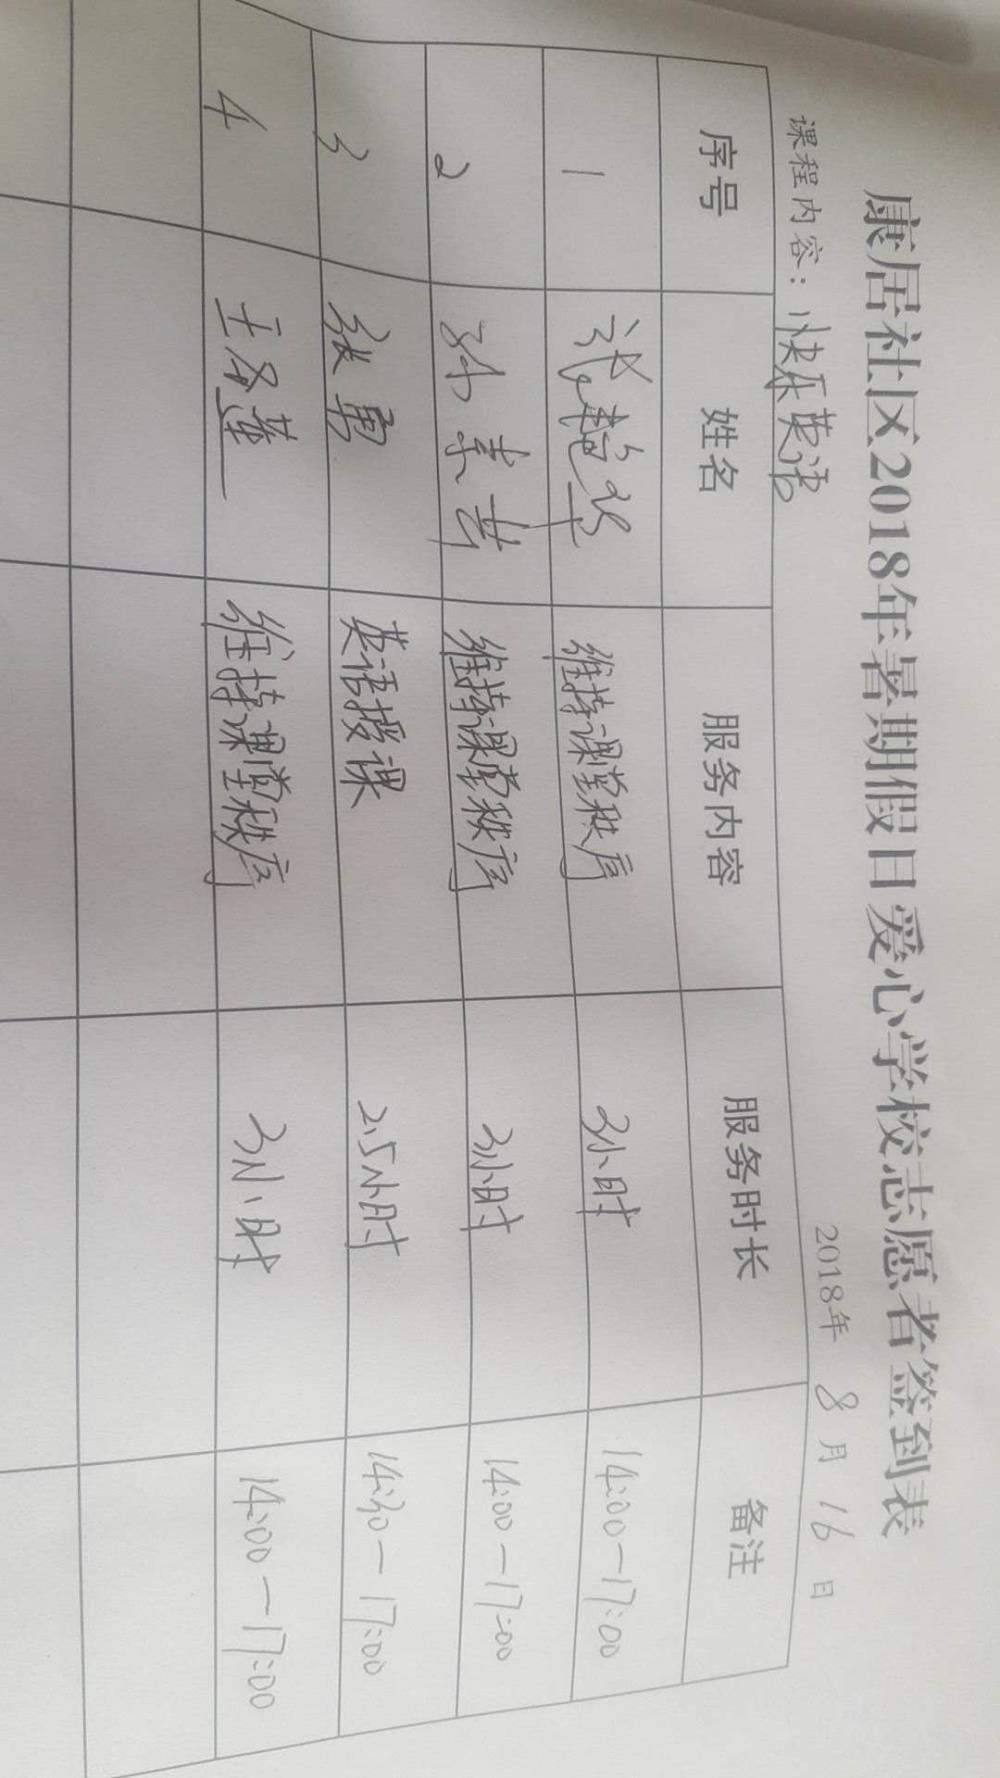 康居社区2018年暑期假日爱心学校志愿者签到表
课程内容：快乐英语 2018年 8 月 16 日
序号 姓名 服务内容 服务时长 备注
1 维持课堂秩序 3小时 14:00—17:00
2 维持课堂秩序 3小时 14:00—17:00
3 张勇 英语授课 2.5小时 14:30—17:00
4 维持课堂秩序 3小时 14:00—17:00